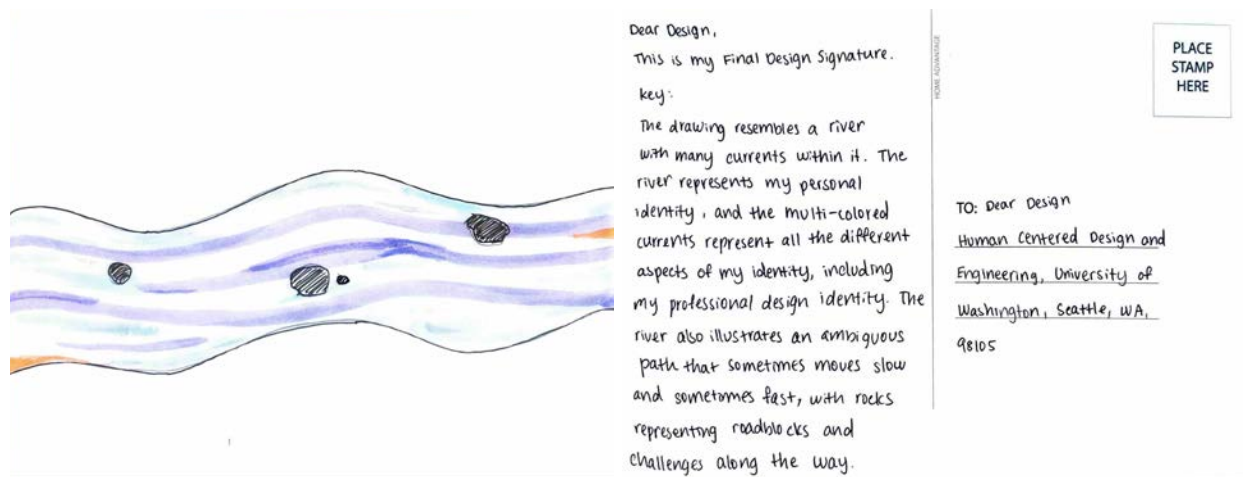 Dear Design,
This is my Final Design Signature.
key:
The drawing resembles a river
with many currents within it. The
river represents my personal
identity, and the multi-colored
currents represent all the different
aspects of my identity, including
my professional design identity. The
river also illustrates an ambiguous
path that sometimes moves slow
and sometimes fast, with rocks
representing roadblocks and
challenges along the way.
HOME ADVANTAGE
PLACE
STAMP
HERE
TO: Dear Design
Human Centered Design and
Engineering, University of
Washington, Seattle, WA,
98105